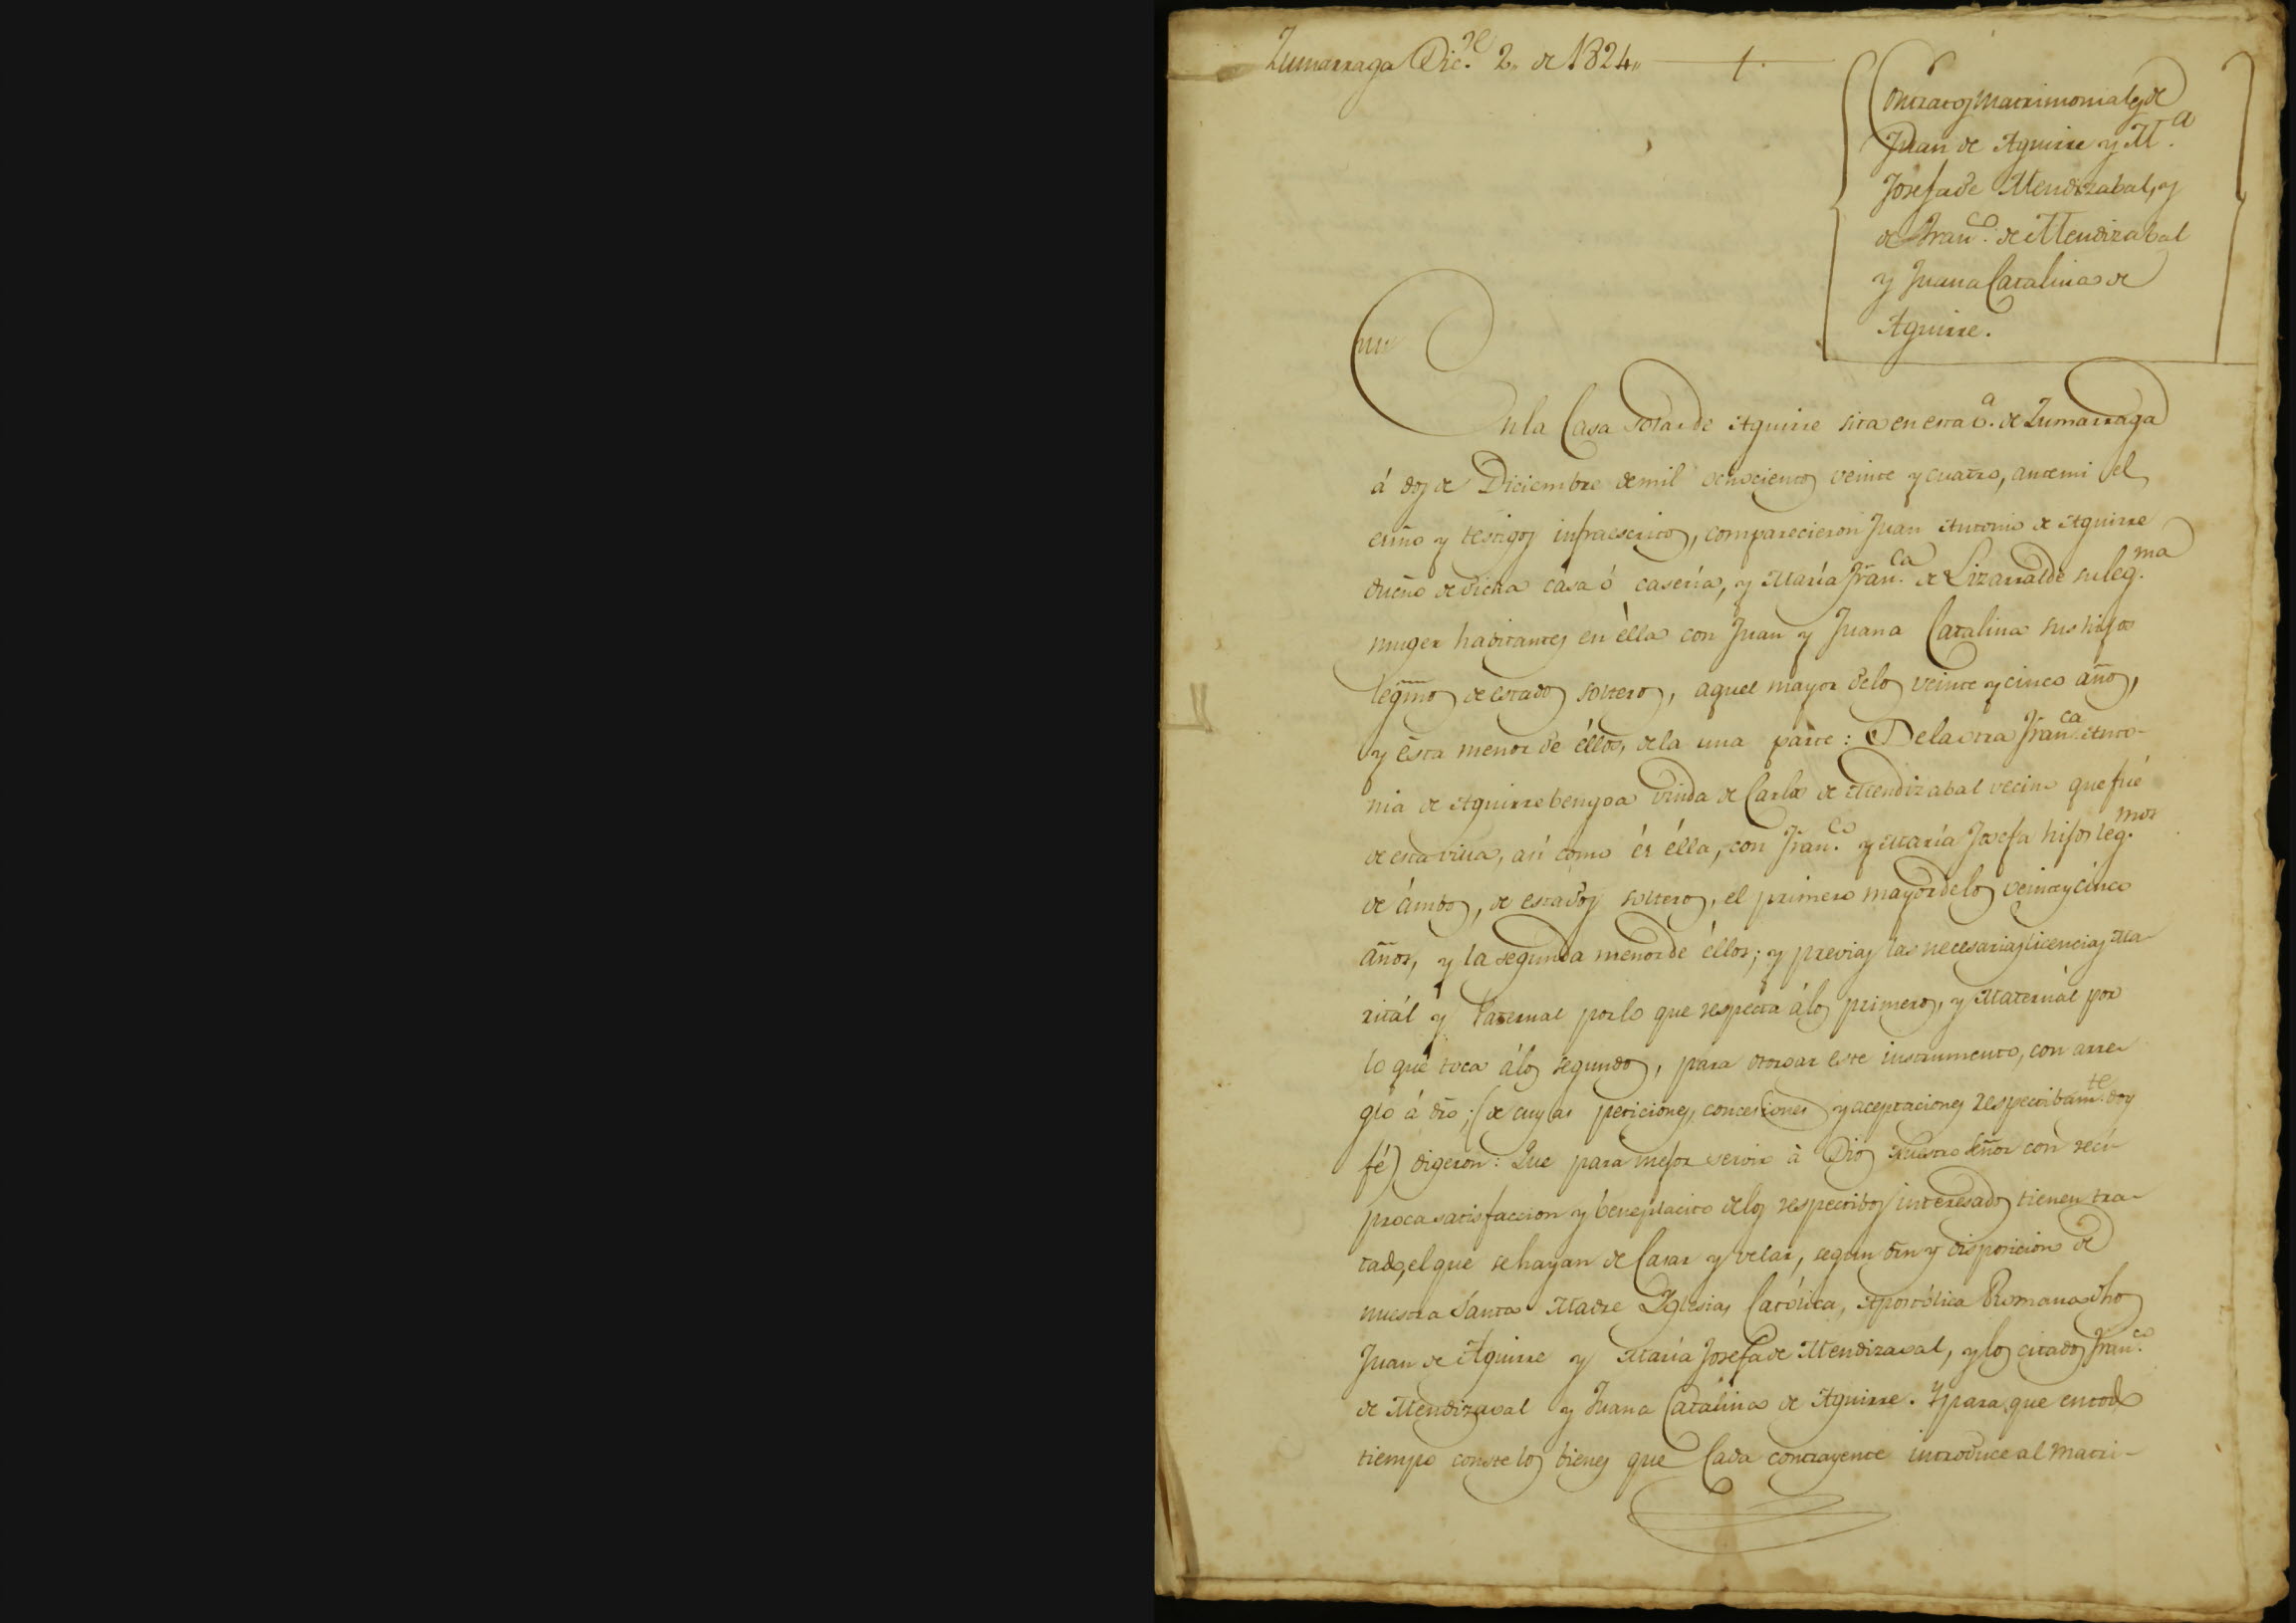 Zumarraga Dic.re 2,, de 1824,,
Contratos Matrimoniales de
Juan de Aguirre y M.a
Josefa de Mendizabal, y
de Fran.co de Mendizabal
y Juana Catalina de
Aguirre.
En la Casa Solar de Aguirre sita en esta v.a de Zumarraga
á dos de Diciembre de mil ochocientos veinte y cuatro, ante mi el
essno y testigos infraescritos, comparecieron Juan Antonio de Aguirre
dueño de dicha casa ó casería, y María Fran.ca de Lizarralde su leg.ma
muger havitantes en élla con Juan y Juana Catalina sus hijos
legmos de estados solteros, aquel mayor de los veinte y cinco años,
y ésta menor de éllos, de la una parte: De la otra Fran.ca Anto-
nia de Aguirrebengoa viuda de Carlos de Mendizabal vecino que fué
de esta villa, así como és élla, con Fran.co y María Josefa hijos leg.mos
de ámbos, de estados solteros, el primero mayor de los veinte y cinco
años, y la segunda menor de éllos; y previas las necesarias licencias Ma-
ritál y Paternal por lo que respecta á los primeros, y Maternál por
lo que toca á los segundos, para otorgar este instrumento, con arre-
glo á dro; (de cuyas peticiones, concesiones y aceptaciones respectibam.te doy
fé) digeron: Que para mejor servir à Dios nuestro Señor con recí-
proca satisfaccion y beneplacito de los respectibos interesados tienen tra-
tado, el que se hayan de Casar y velar, segun orn y disposicion de
nuestra Santa Madre Yglesia, Católica, Apostólica Romana dhos
Juan de Aguirre y María Josefa de Mendizabal, y los citados Fran.co
de Mendizabal y Juana Catalina de Aguirre. Y para que en todo
tiempo conste los bienes que Cada contrayente introduce al Matri-